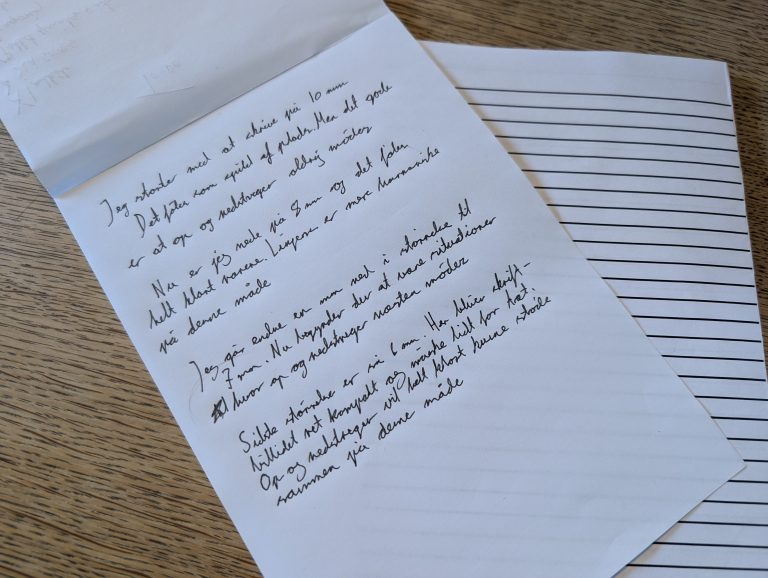 Jeg starter med at skrive på 10 mm
Det føles som spild af plads. Men det gode
er at op og nedstreger aldrig mødes
Nu er jeg nede på 8 mm og det føles
helt klart rarere. Linjerne er mere harmoniske
på denne måde
Jeg går endnu en mm ned i størrelse til
7 mm. Nu begynder der at være situationer
hvor op og nedstreger næsten mødes
Sidste størrelse er så 6 mm. Her bliver skrift-
billedet ret kompakt og måske lidt for tæt.
Op og nedstreger vil helt klart kunne støde
sammen på denne måde